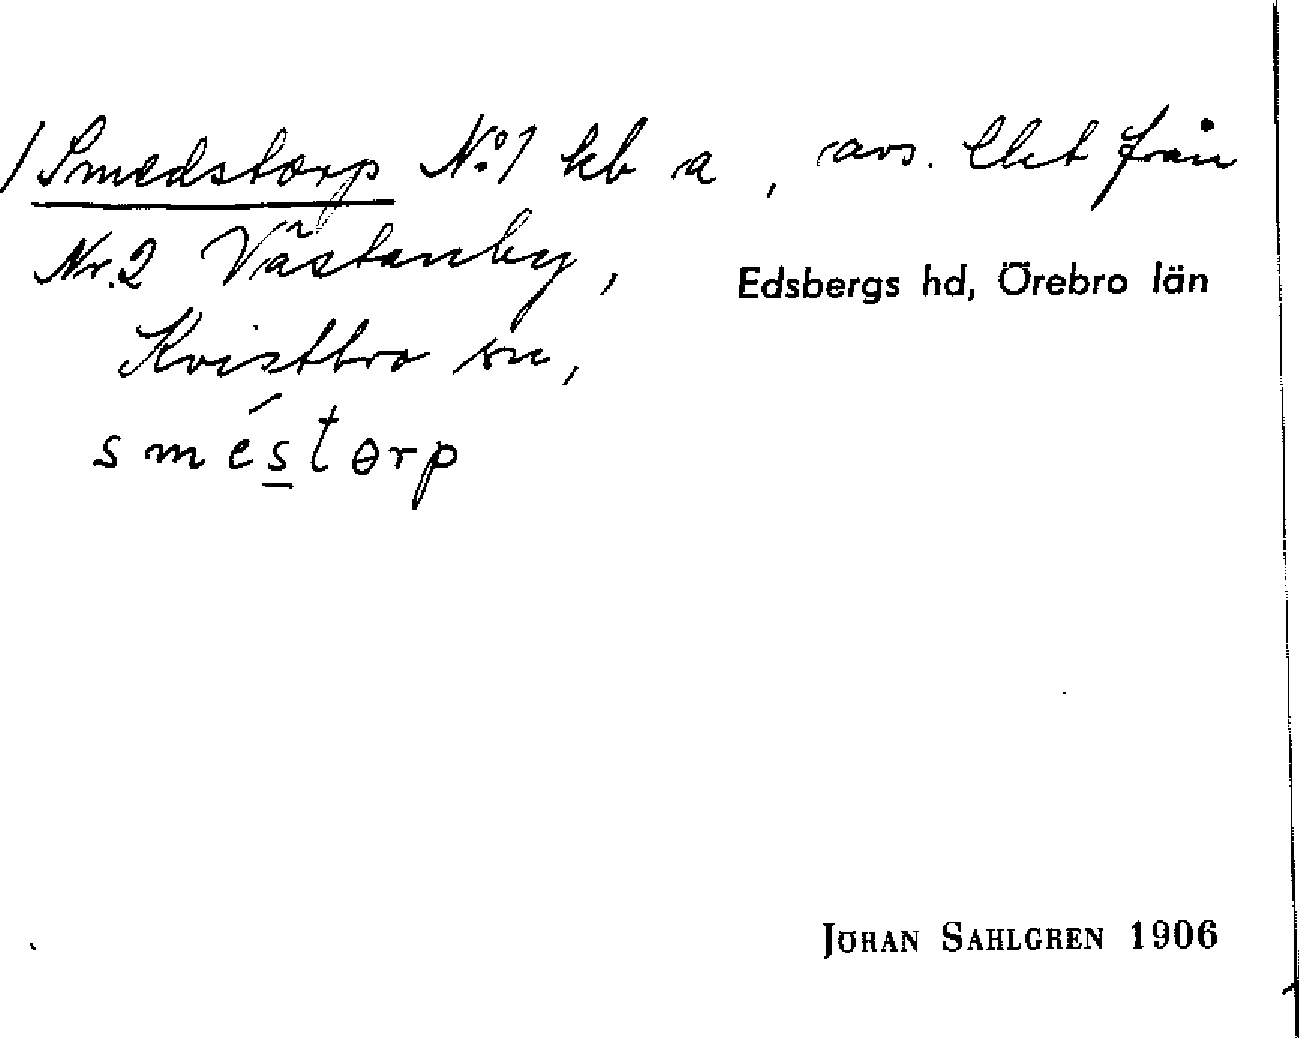 / Smedstorp No: 1 kb a, avs. lht från
Nr. 2 Västanby,
Edsbergs hd, Örebro län
Kvistbro sn,
sméstɵrp
JÖRAN SAHLGREN 1906